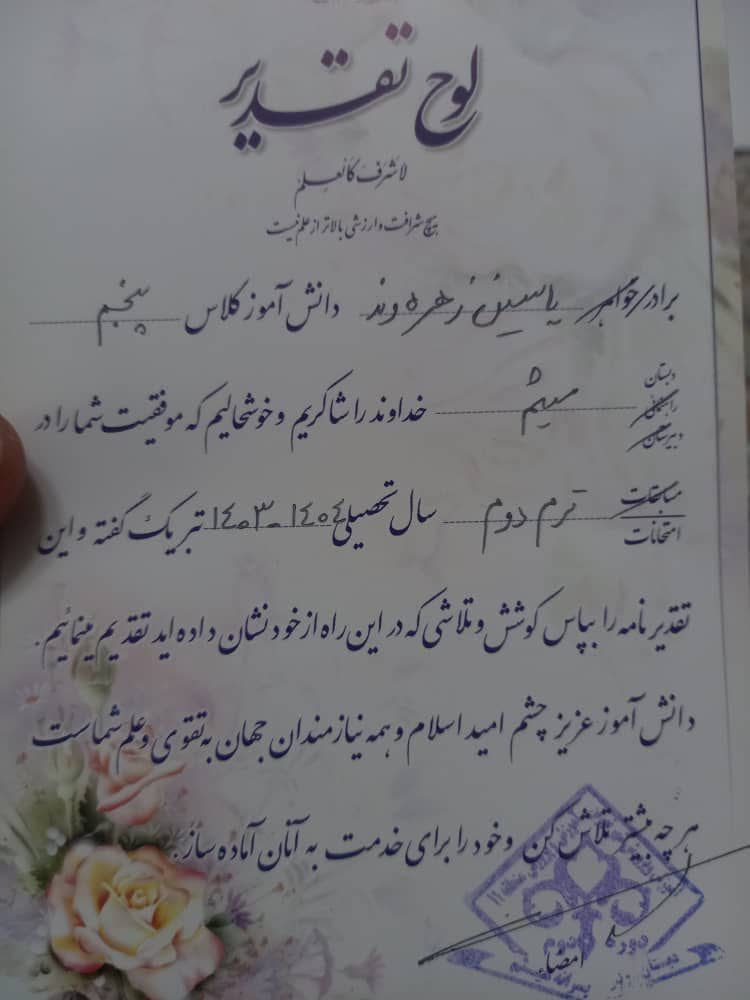 لوح تقدیر
لاشَرَفَ کَالْعِلمِ
هیچ شرافت و ارزشی بالاتر از علم نیست
برادر/خواهر یاسین زهره وند دانش آموز کلاس پنجم
دبستان
راهنمائی
دبیرستان
میثم خداوند را شاکریم و خوشحالیم که موفقیت شما را در
مسابقات
امتحانات
ترم دوم سال تحصیلی ۱۴۰۴-۱۴۰۳ تبریک گفته و این
تقدیر نامه را بپاس کوشش و تلاشی که در این راه از خود نشان داده اید تقدیم مینمائیم.
دانش آموز عزیز چشم امید اسلام و همه نیازمندان جهان به تقوی و علم شماست
هر چه بیشتر تلاش کن و خود را برای خدمت به آنان آماده ساز.
منطقه ۱۱
دوره دوم
امضاء
دبستان پسرانه میثم